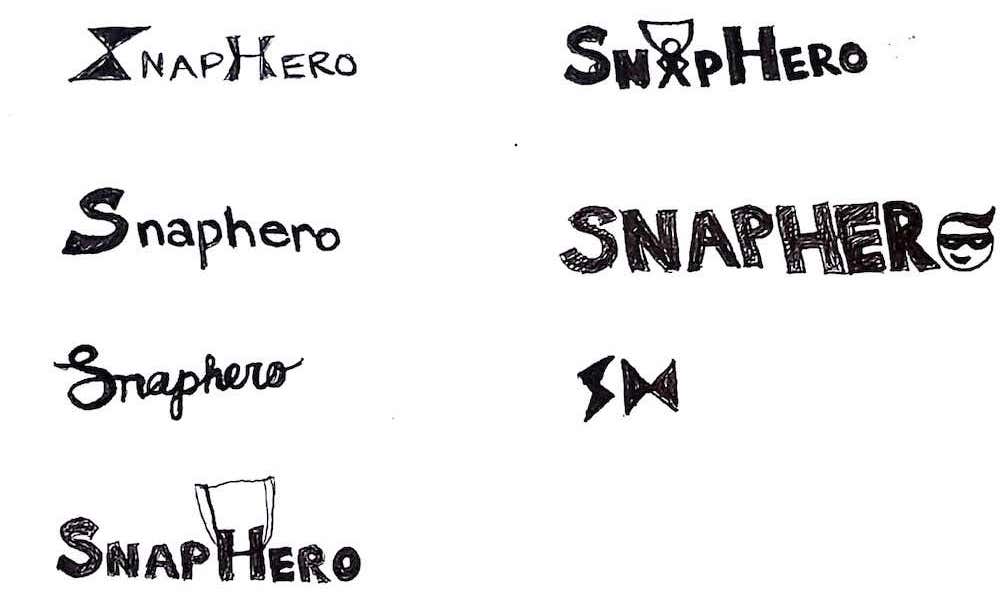 SNAPHERO
Snaphero
Snaphero
SNAPHERO
SNAPHERO
SNAPHERO
SH